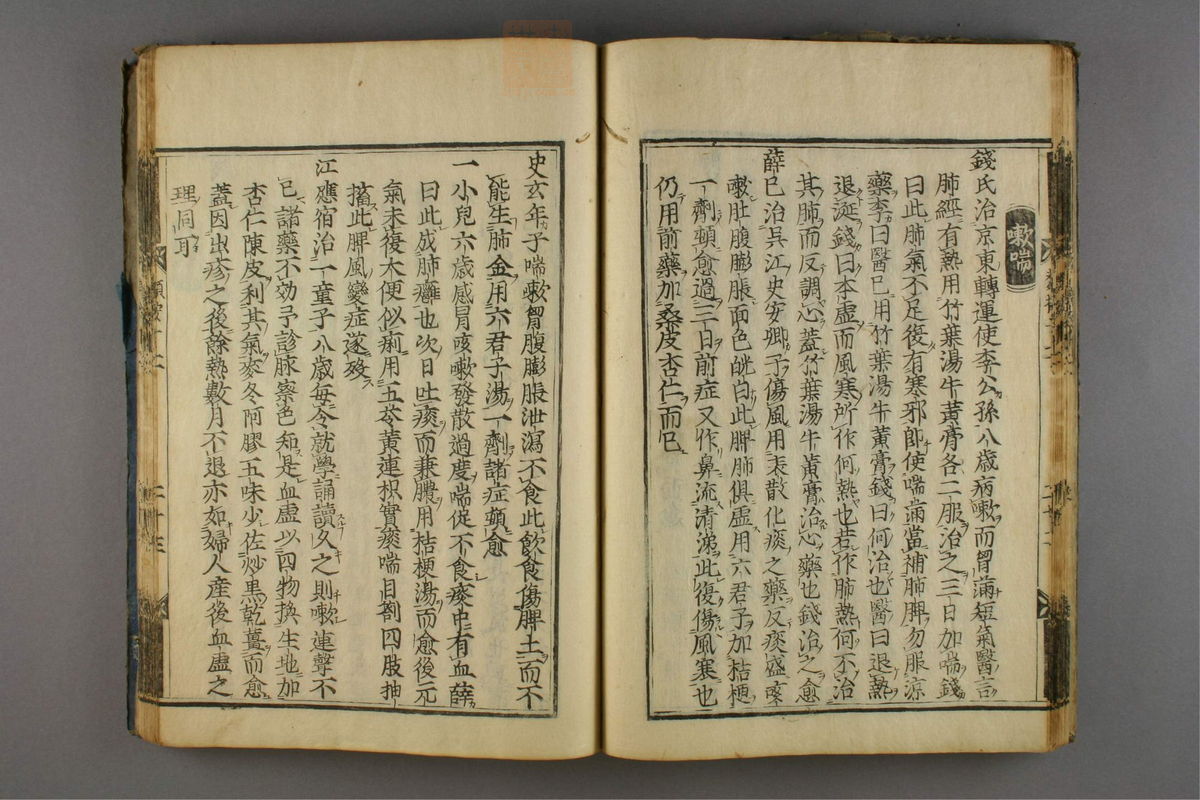 嗽喘
錢氏治京東轉運使李公孫八歲病嗽而胷滿短氣醫言
肺經有熱用竹葉湯牛黃膏各二服治之三日加喘錢
曰此肺氣不足復有寒邪即使喘滿當補肺脾勿服涼
藥李曰醫已用竹葉湯牛黃膏錢曰何治也醫曰退熱
退涎錢曰本虛而風寒所作何熱也若作肺熱何不治
其肺而反調心蓋竹葉湯牛黃膏治心藥也錢治之愈
薛已治吳江史安卿子傷風用表散化痰之藥反痰盛咳
嗽肚腹膨脹面色㿠白此脾肺俱虛用六君子加桔梗
一劑頓愈過三日前症又作鼻流清涕此復傷風寒也
仍用前藥加桑皮杏仁而已
史玄年子喘嗽胷腹膨脹泄瀉不食此飲食傷脾土而不
能生肺金用六君子湯一劑諸症頓愈
一小兒六歲感冒咳嗽發散過度喘促不食痰中有血薛
曰此成肺癰也次日吐痰而兼膿用桔梗湯而愈後元
氣未復大便似痢用五苓黃連枳實痰喘目劄四肢抽
搐此脾風變症遂歿
江應宿治一童子八歲每令就學誦讀久之則嗽連聲不
已諸藥不効予診脉察色知是血虛以四物換生地加
杏仁陳皮利其氣麥冬阿膠五味少佐炒黑乾薑而愈
蓋因出疹之後餘熱數月不退亦如婦人產後血虛之
理同耳